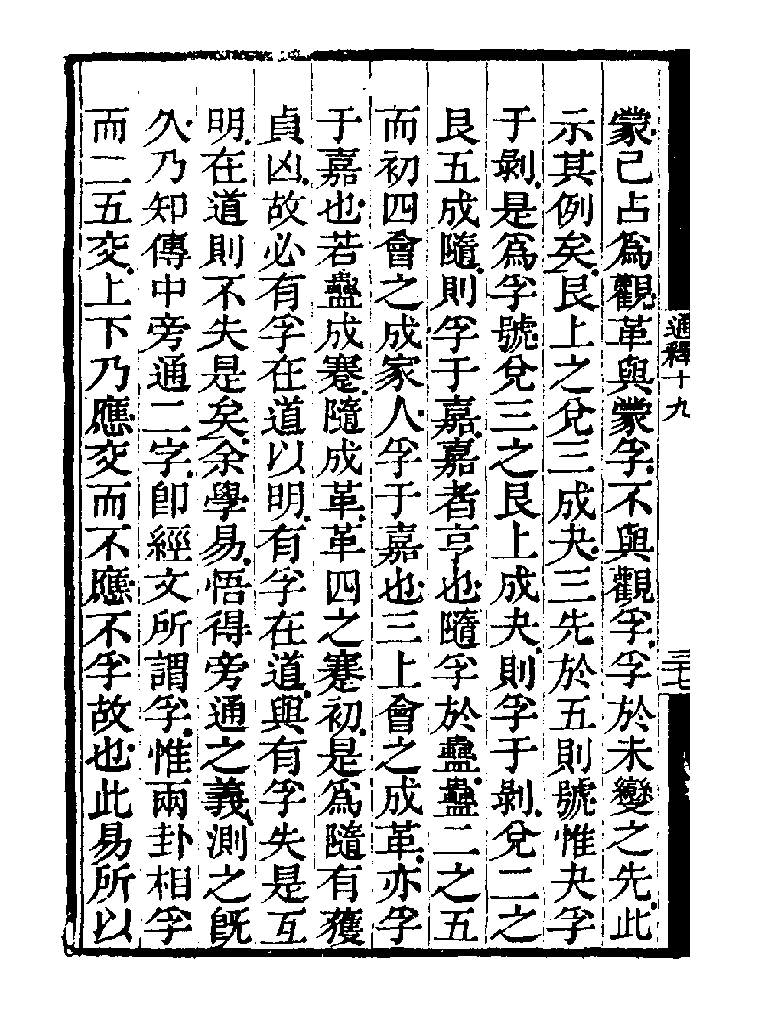 蒙己占爲觀革與蒙孚不與觀孚孚於未變之先此
示其例矣艮上之兌三成夬三先於五則號惟夬孚
于剝是爲孚號兌三之艮上成夬則孚于剝兌二之
艮五成隨則孚于嘉嘉者亨也隨孚於蠱蠱二之五
而初四會之成家人孚于嘉也三上會之成革亦孚
于嘉也若蠱成蹇隨成革革四之蹇初是爲隨有獲
貞凶故必有孚在道以明有孚在道與有孚失是互
明在道則不失是矣余學易悟得旁通之義測之旣
久乃知傳中旁通二字卽經文所謂孚惟兩卦相孚
而二五交上下乃應交而不應不孚故也此易所以
通釋十九
三七